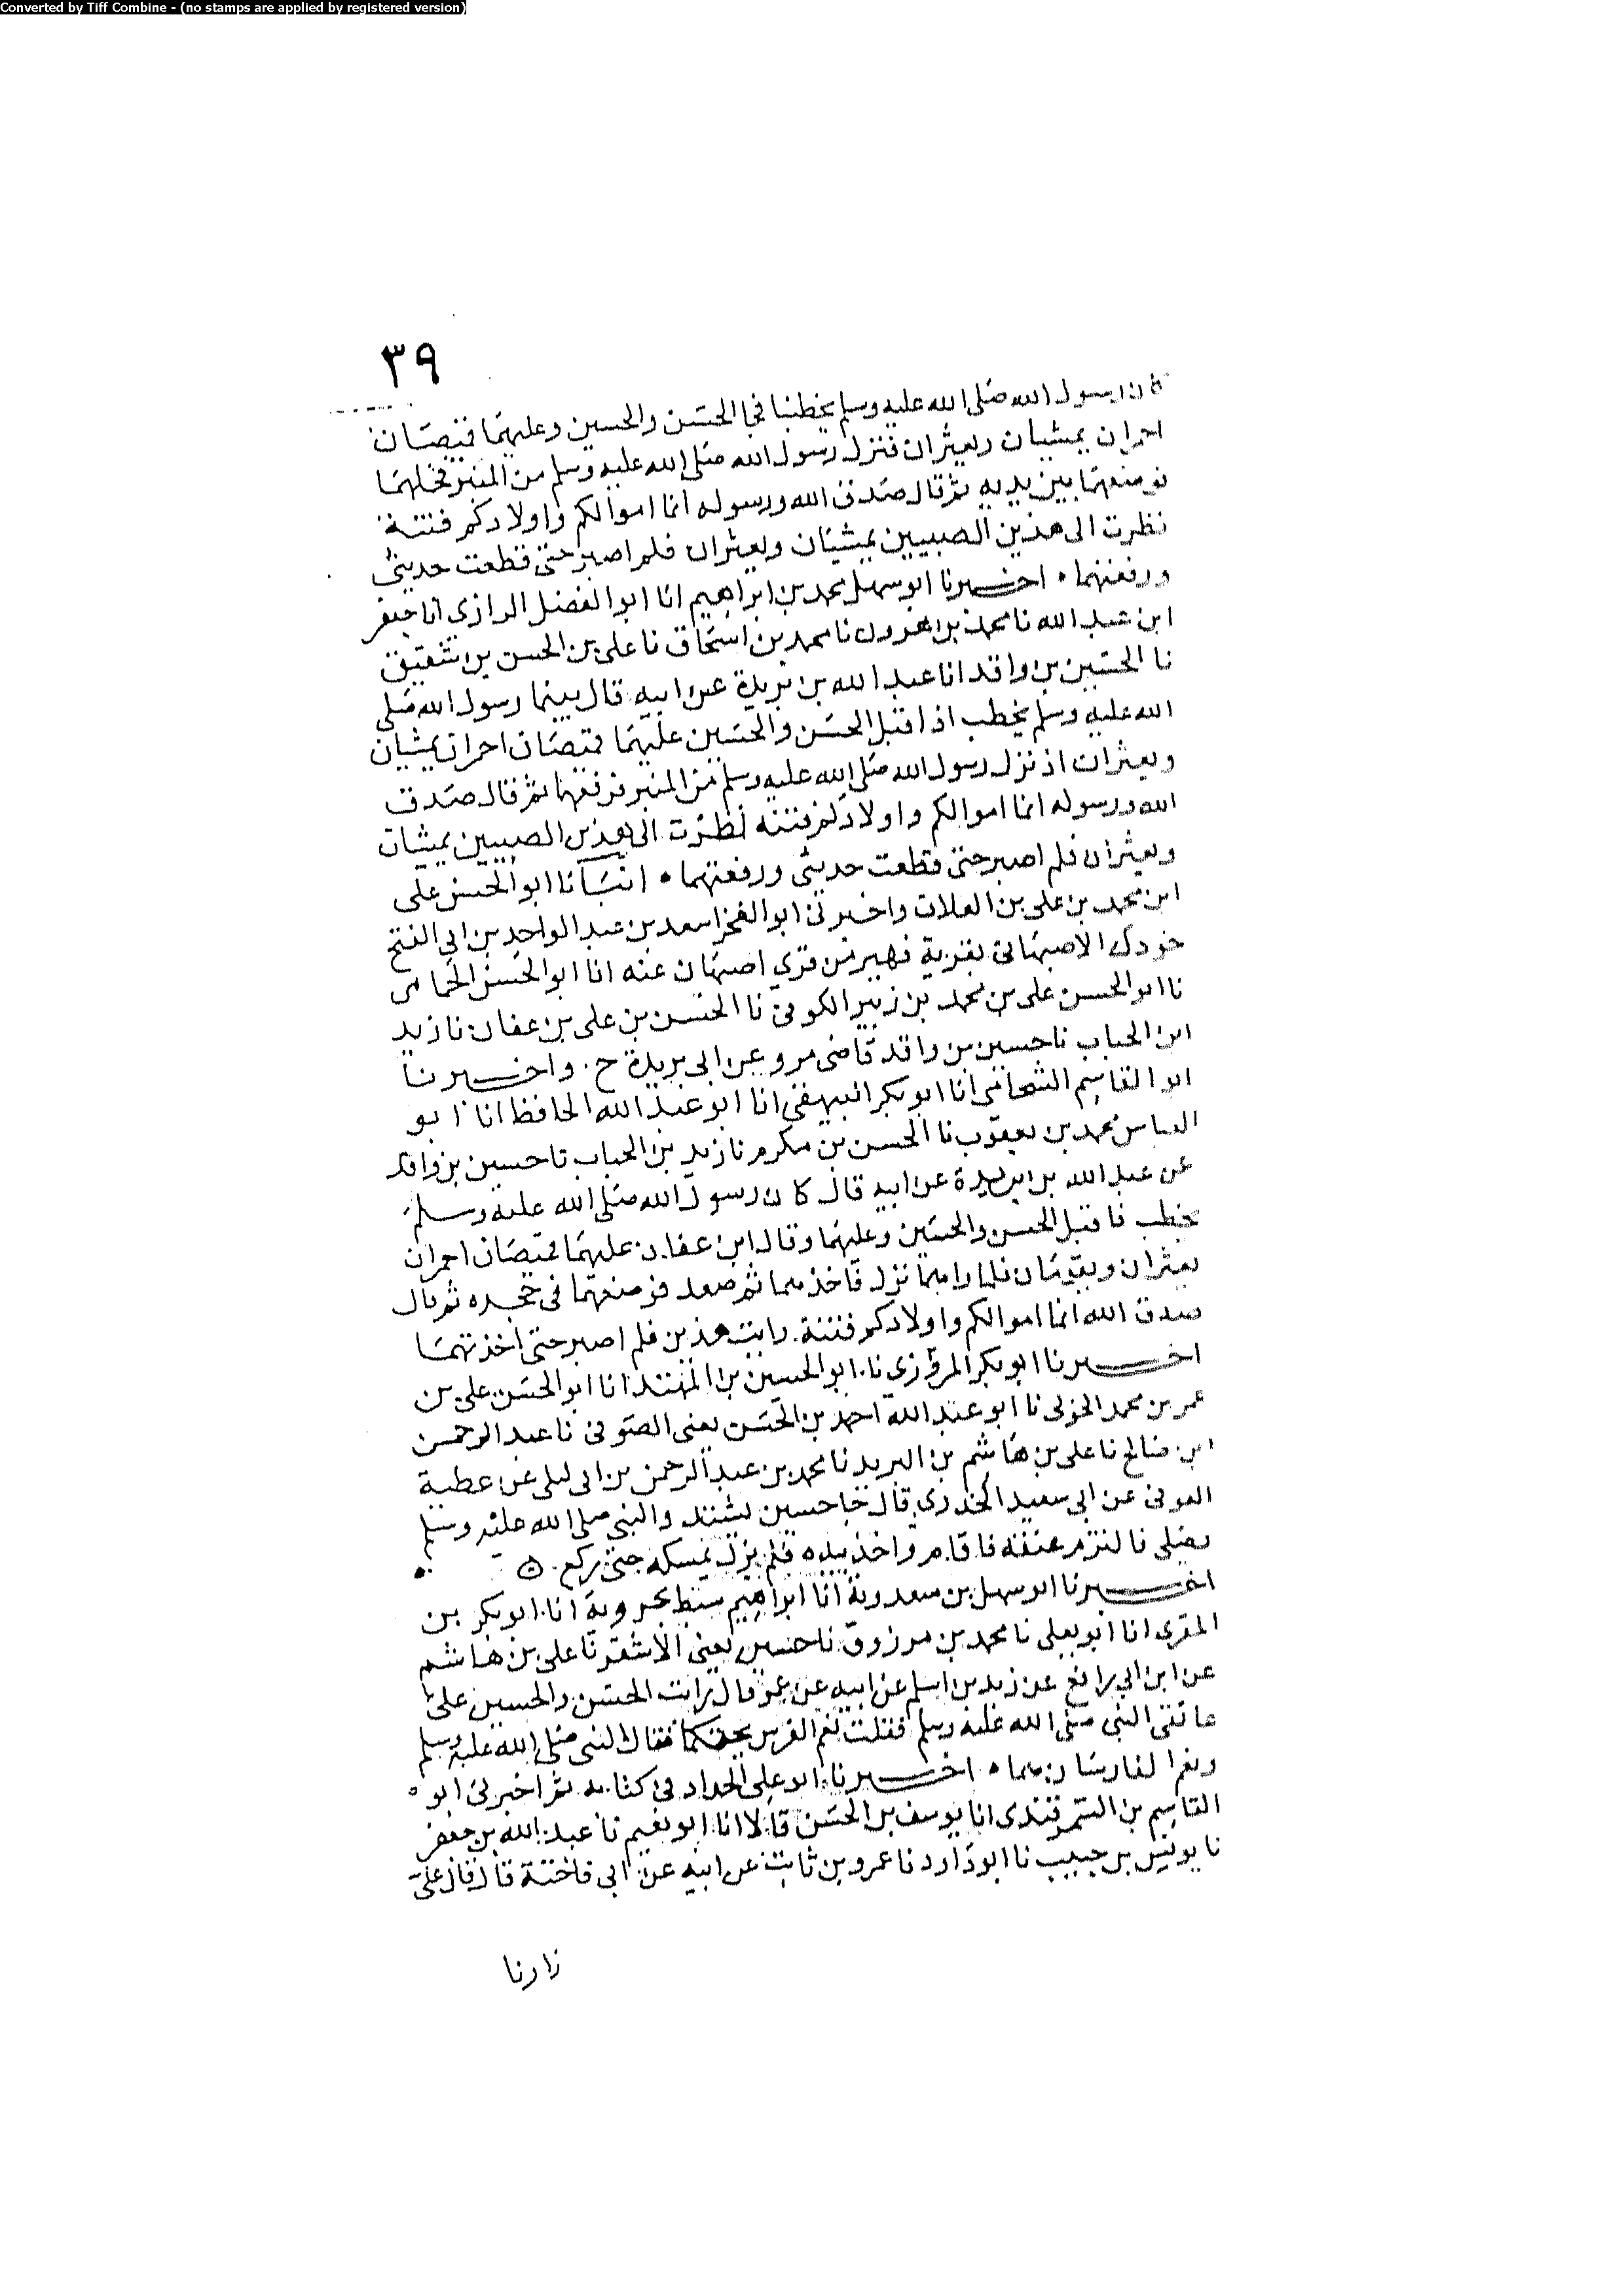 Converted by Tiff Combine - (no stamps are applied by registered version)
٣٩
كان رسول الله صلى الله عليه وسلم يخطبنا فجا الحسن والحسين وعليهما قميصان
احمران يمشيان ويعثران فنزل رسول الله صلى الله عليه وسلم من المنبر فحملهما
فوضعهما بين يديه ثم قال صدق الله ورسوله انما اموالكم واولادكم فتنة
نظرت الى هذين الصبيين يمشيان ويعثران فلم اصبر حتى قطعت حديثي
ورفعتهما اخبرنا ابو سهل محمد بن ابراهيم انا ابو الفضل الرازى انا جعفر
ابن عبد الله نا محمد بن هرون نا محمد بن اسحاق نا على بن الحسن بن شقيق
نا الحسين بن واقد انا عبد الله بن بريدة عن ابيه قال بينما رسول الله صلى
الله عليه وسلم يخطب اذ اقبل الحسن والحسين عليهما قميصان احمران يمشيان
ويعثران اذ نزل رسول الله صلى الله عليه وسلم من المنبر فرفعهما ثم قال صدق
الله ورسوله انما اموالكم واولادكم فتنه نظرت الى هذين الصبيين يمشيان
ويعثران فلم اصبر حتى قطعت حديثى ورفعتهما انبانا ابو الحسن على
ابن محمد بن على بن العلاف واخبرنى ابو الفخر اسعد بن عبد الواحد بن ابى الفتح
الاصبهانى بقرية من قرى اصبهان عنه انا ابو الحسن الحمامى
نا ابو الحسن على بن محمد بن زبير الكوفى نا الحسن بن على بن عفان نا زيد
ابن الحباب نا حسين بن واقد قاضى مرو عن ابى بريدة ح واخبرنا
ابو القاسم الشحامى انا ابو بكر البيهقى انا ابو عبد الله الحافظ انا ابو
العباس محمد بن يعقوب نا الحسن بن مكرم نا زيد بن الحباب نا حسين بن واقد
عن عبد الله بن بريدة عن ابيه قال كان رسول الله صلى الله عليه وسلم
يخطب فاقبل الحسن والحسين وعليهما وقال ابن عفان عليهما قميصان احمران
يعثران ويقومان فلما راهما نزل فاخذهما ثم صعد فوضعهما فى حجره ثم قال
صدق الله انما اموالكم واولادكم فتنة رايت هذين فلم اصبر حتى اخذتهما
اخبرنا ابو بكر المرزفى نا ابو الحسين بن المهتدى انا ابو الحسن على بن
عمر بن محمد الحربى نا ابو عبد الله احمد بن الحسن يعنى الصوفى نا عبد الرحمن
ابن صالح نا على بن هاشم بن البريد نا محمد بن عبد الرحمن بن ابى ليلى عن عطية
العوفى عن ابى سعيد الخدرى قال جا حسين يشتد والنبى صلى الله عليه وسلم
يصلى فالتزم عنقه فاقام واخذ بيده فلم يزل يمسكه حتى ركع
اخبرنا ابو سهل بن سعدوية انا ابراهيم سبط بحروية انا ابو بكر بن
المقرى انا ابو يعلى نا محمد بن مرزوق نا حسين يعنى الاشقر نا على بن هاشم
عن ابن ابى رافع عن زيد بن اسلم عن ابيه عن عمر قال رايت الحسن والحسين على
عاتقى النبى صلى الله عليه وسلم فقلت نعم الفرس تحتكما فقال النبى صلى الله عليه وسلم
ونعم الفارسان هما اخبرنا ابو على الحداد فى كتابه ثم اخبرنى ابو
القاسم بن السمرقندى انا يوسف بن الحسن قالا انا ابو نعيم نا عبد الله بن جعفر
نا يونس بن حبيب نا ابو داود نا عمرو بن ثابت عن ابيه عن ابى فاختة قال قال على
زارنا